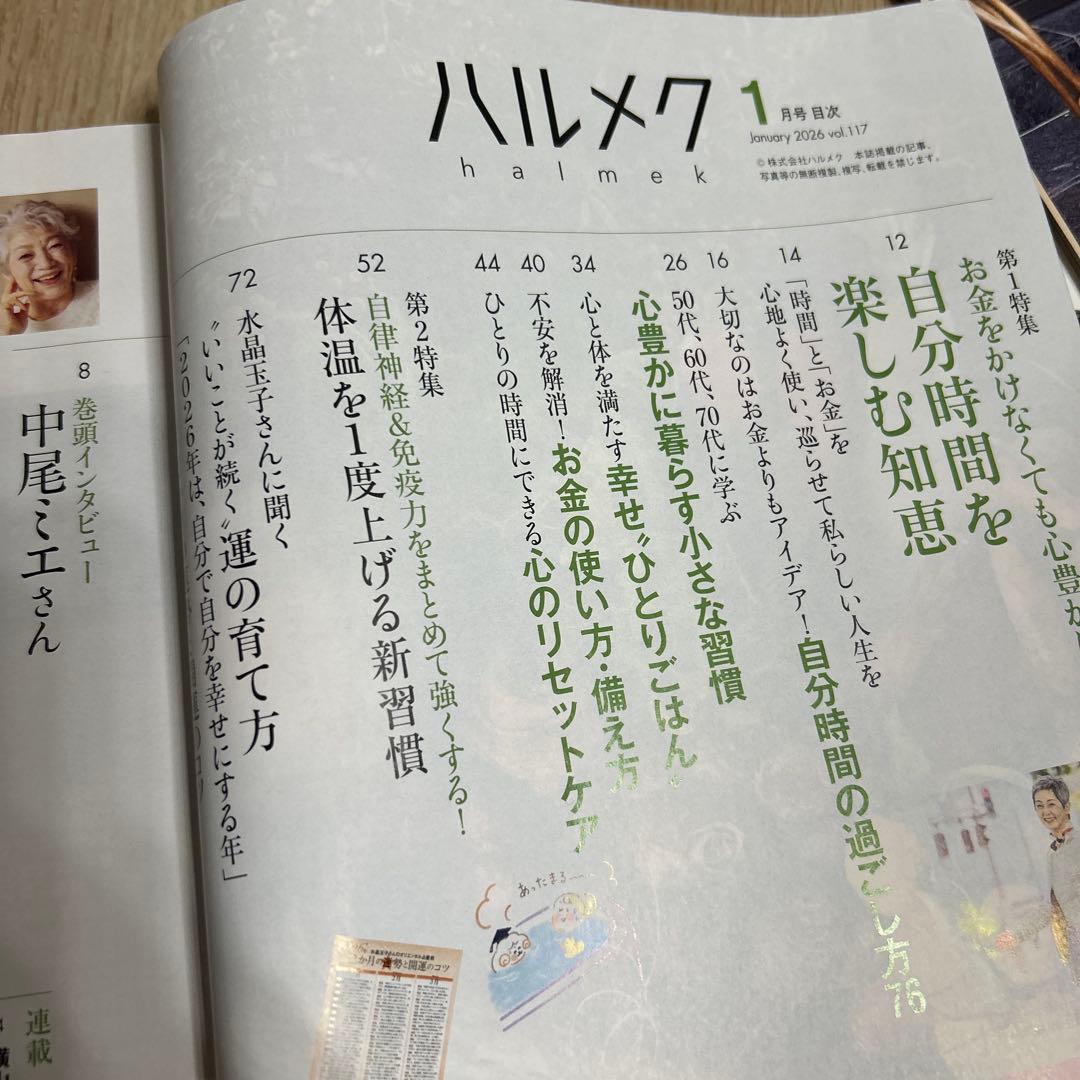 ハルメク
halmek
1月号 目次
January 2026 vol.117
©株式会社ハルメク 本誌掲載の記事、
写真等の無断複製、複写、転載を禁じます。
第1特集
お金をかけなくても心豊か
12
自分時間を
楽しむ知恵
14
「時間」と「お金」を
心地よく使い、巡らせて私らしい人生を
16
大切なのはお金よりもアイデア！自分時間の過ごし方76
26
50代、60代、70代に学ぶ
心豊かに暮らす小さな習慣
34
心と体を満たす幸せ〝ひとりごはん〟
40
不安を解消！お金の使い方・備え方
44
ひとりの時間にできる心のリセットケア
第2特集
52
自律神経&免疫力をまとめて強くする！
体温を1度上げる新習慣
72
水晶玉子さんに聞く
〝いいことが続く〟運の育て方
「2026年は、自分で自分を幸せにする年」
あったまる〜
か月の運勢と開運のコツ
8
巻頭インタビュー
中尾ミエさん
連載